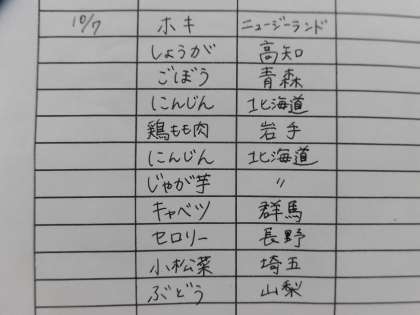 10/7 ホキ ニュージーランド
しょうが 高知
ごぼう 青森
にんじん 北海道
鶏もも肉 岩手
にんじん 北海道
じゃが芋 〃
キャベツ 群馬
セロリー 長野
小松菜 埼玉
ぶどう 山梨